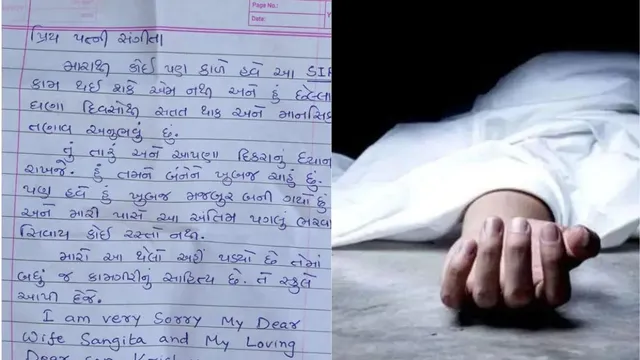 Page No.:
Date:
પ્રિય પત્ની સંગીતા
મારાથી કોઈ પણ કાળે હવે આ SIR
કામ થઈ શકે એમ નથી અને હું છેલ્લા
ઘણા દિવસોથી સતત થાક અને માનસિક
તણાવ અનુભવું છું.
તું તારું અને આપણા દિકરાનું ધ્યાન
રાખજે. હું તમને બંનેને ખુબજ ચાહું છું.
પણ હવે હું ખુબજ મજબુર બની ગયો છું
અને મારી પાસે આ અંતિમ પગલું ભરવા
સિવાય કોઈ રસ્તો નથી.
મારો આ થેલો અહી પડ્યો છે તેમાં
બધું જ કામગીરીનું સાહિત્ય છે. તે સ્કુલે
આપી દેજે.
I am very Sorry My Dear
Wife Sangita and My Loving
Dear